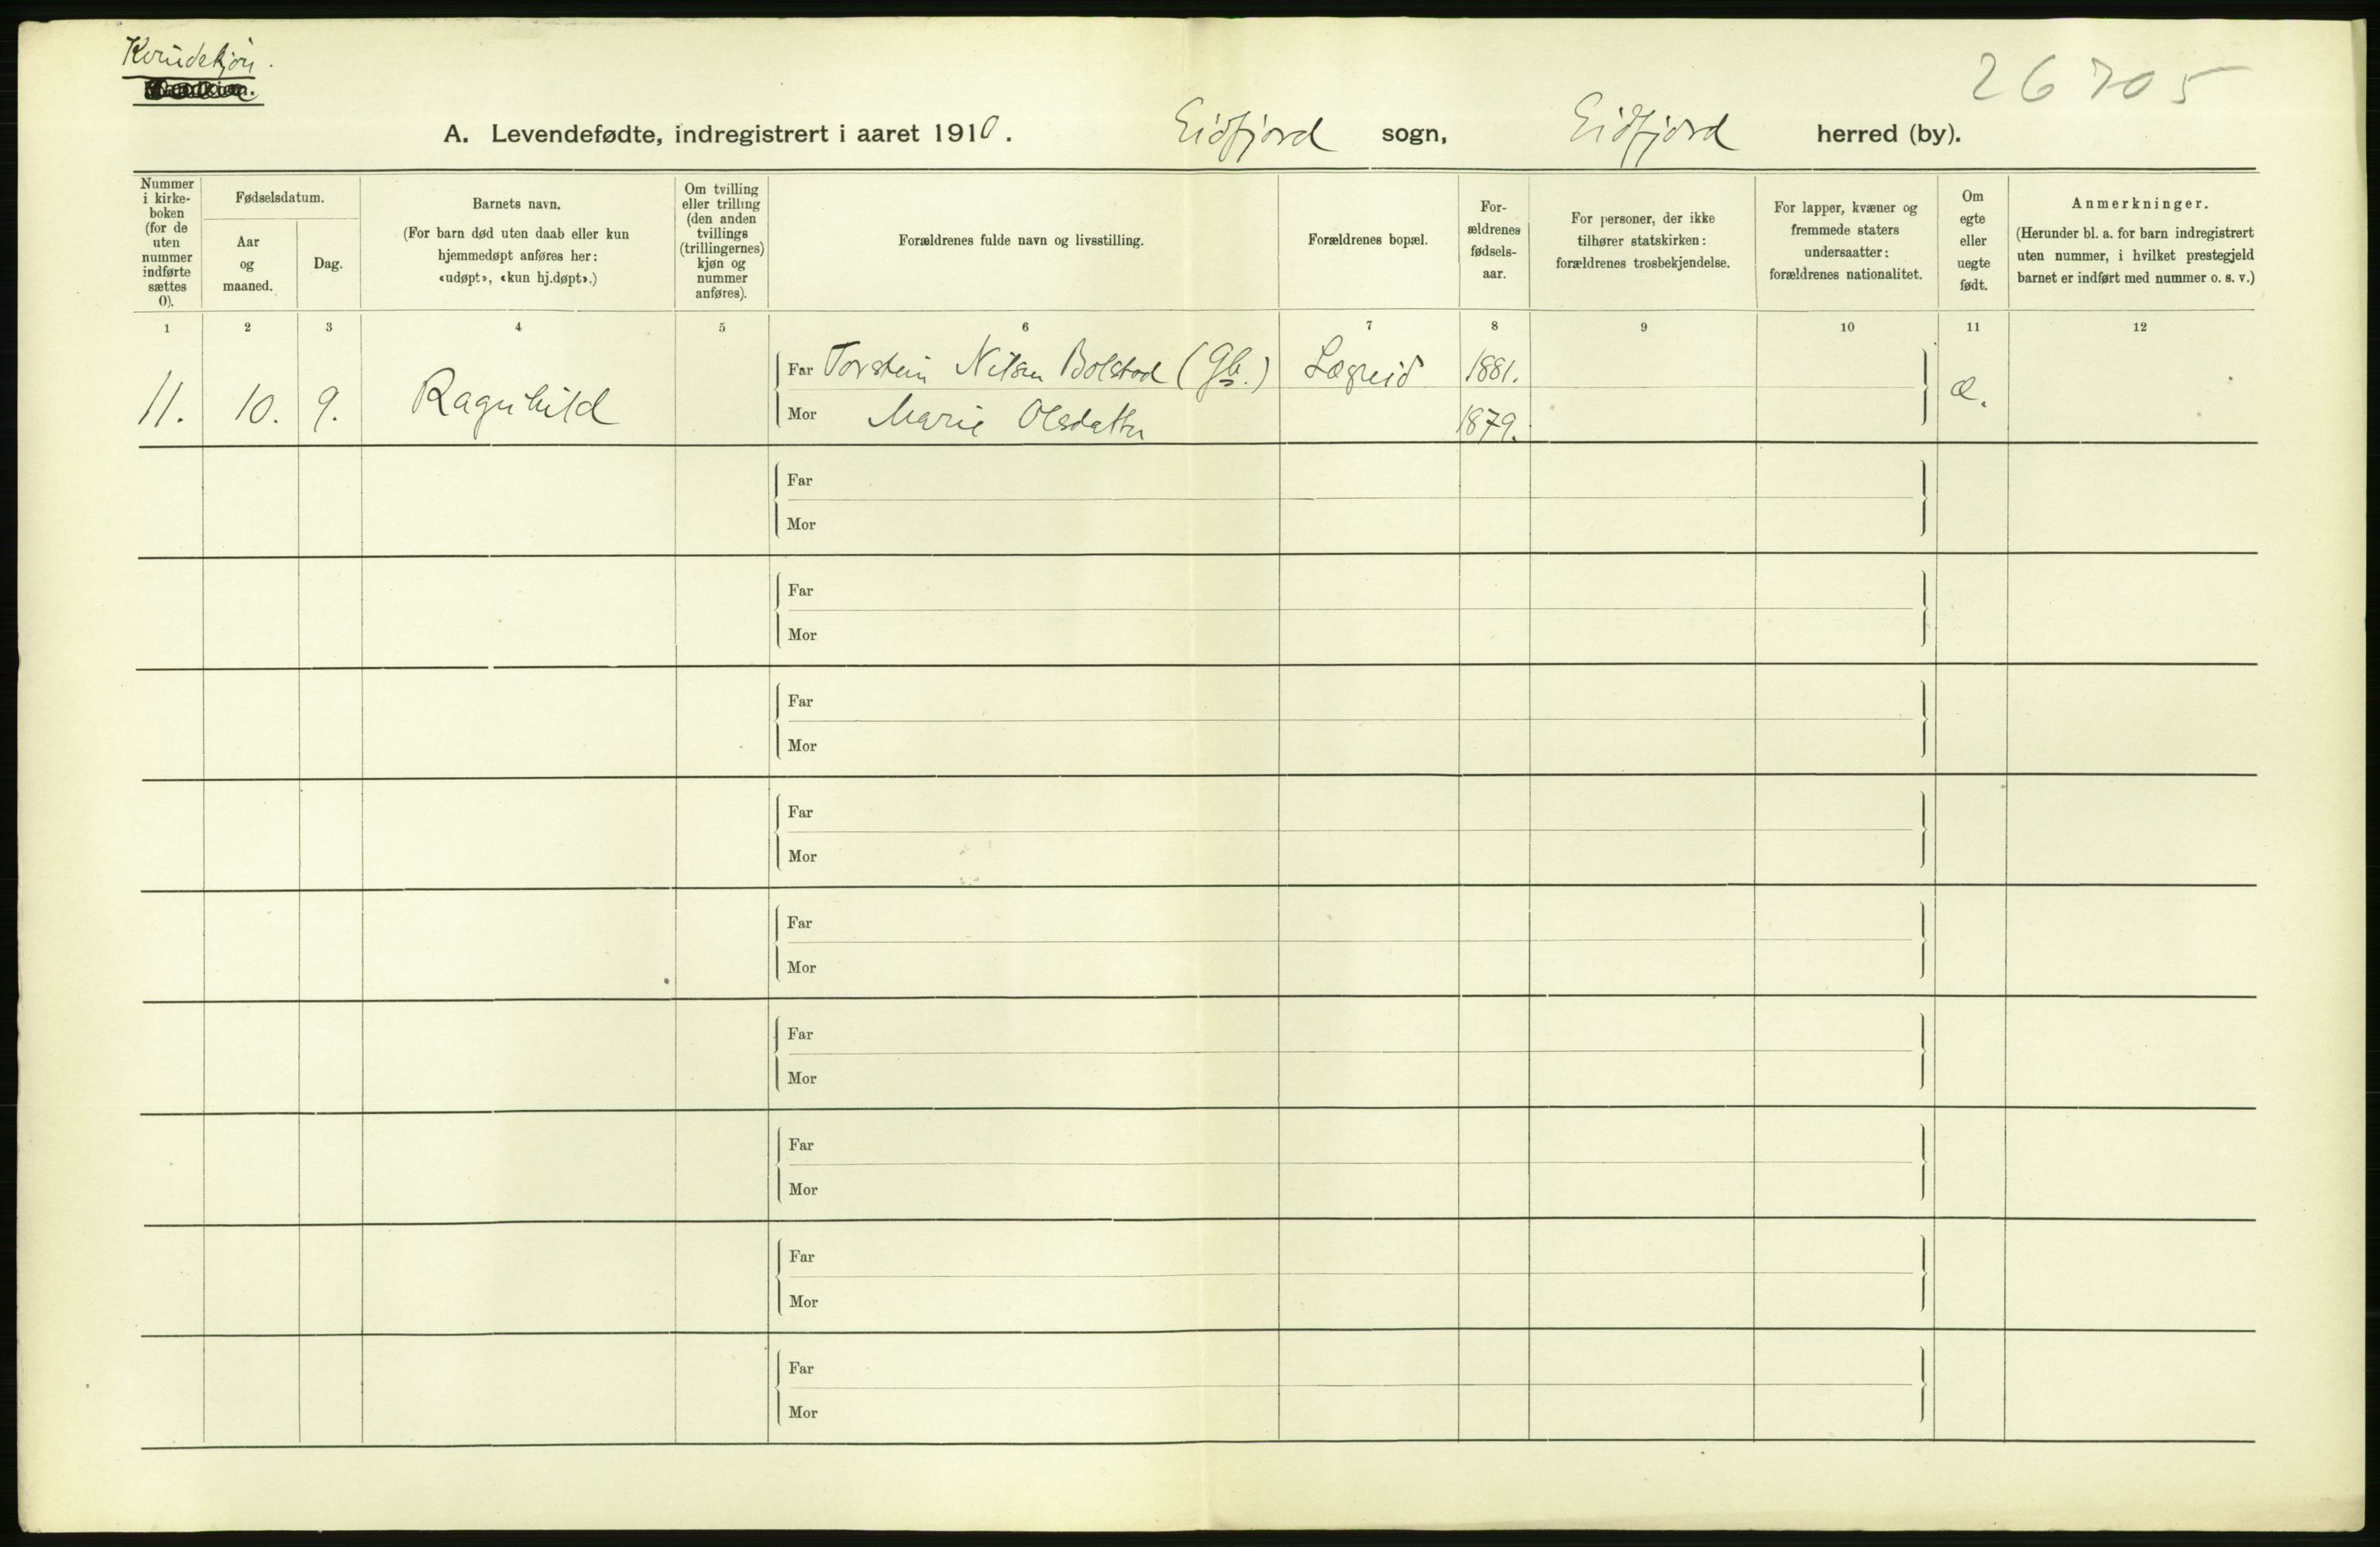 Kvindekjøn.
26705
A. Levendefødte, indregistrert i aaret 1910. Eidfjord sogn, Eidfjord herred (by).
Nummer
i kirke-
boken
(for de
uten
nummer
indførte
sættes
0).
Fødselsdatum.
Aar
og
maaned.
Dag.
Barnets navn.
(For barn død uten daab eller kun
hjemmedøpt anføres her:
«udøpt», «kun hj.døpt».)
Om tvilling
eller trilling
(den anden
tvillings
(trillingernes)
kjøn og
nummer
anføres).
Forældrenes fulde navn og livsstilling.
Forældrenes bopæl.
For-
ældrenes
fødsels-
aar.
For personer, der ikke
tilhører statskirken:
forældrenes trosbekjendelse.
For lapper, kvæner og
fremmede staters
undersaatter:
forældrenes nationalitet.
Om
egte
eller
uegte
født.
Anmerkninger.
(Herunder bl. a. for barn indregistrert
uten nummer, i hvilket prestegjeld
barnet er indført med nummer o. s. v.)
1 2 3 4 5 6 7 8 9 10 11 12
Far Torstein Nilsen Bolstad (Gb.) Lægreid 1881.
11. 10. 9. Ragnhild æ.
Mor Marie Olsdatter 1879.
Far
Mor
Far
Mor
Far
Mor
Far
Mor
Far
Mor
Far
Mor
Far
Mor
Far
Mor
Far
Mor